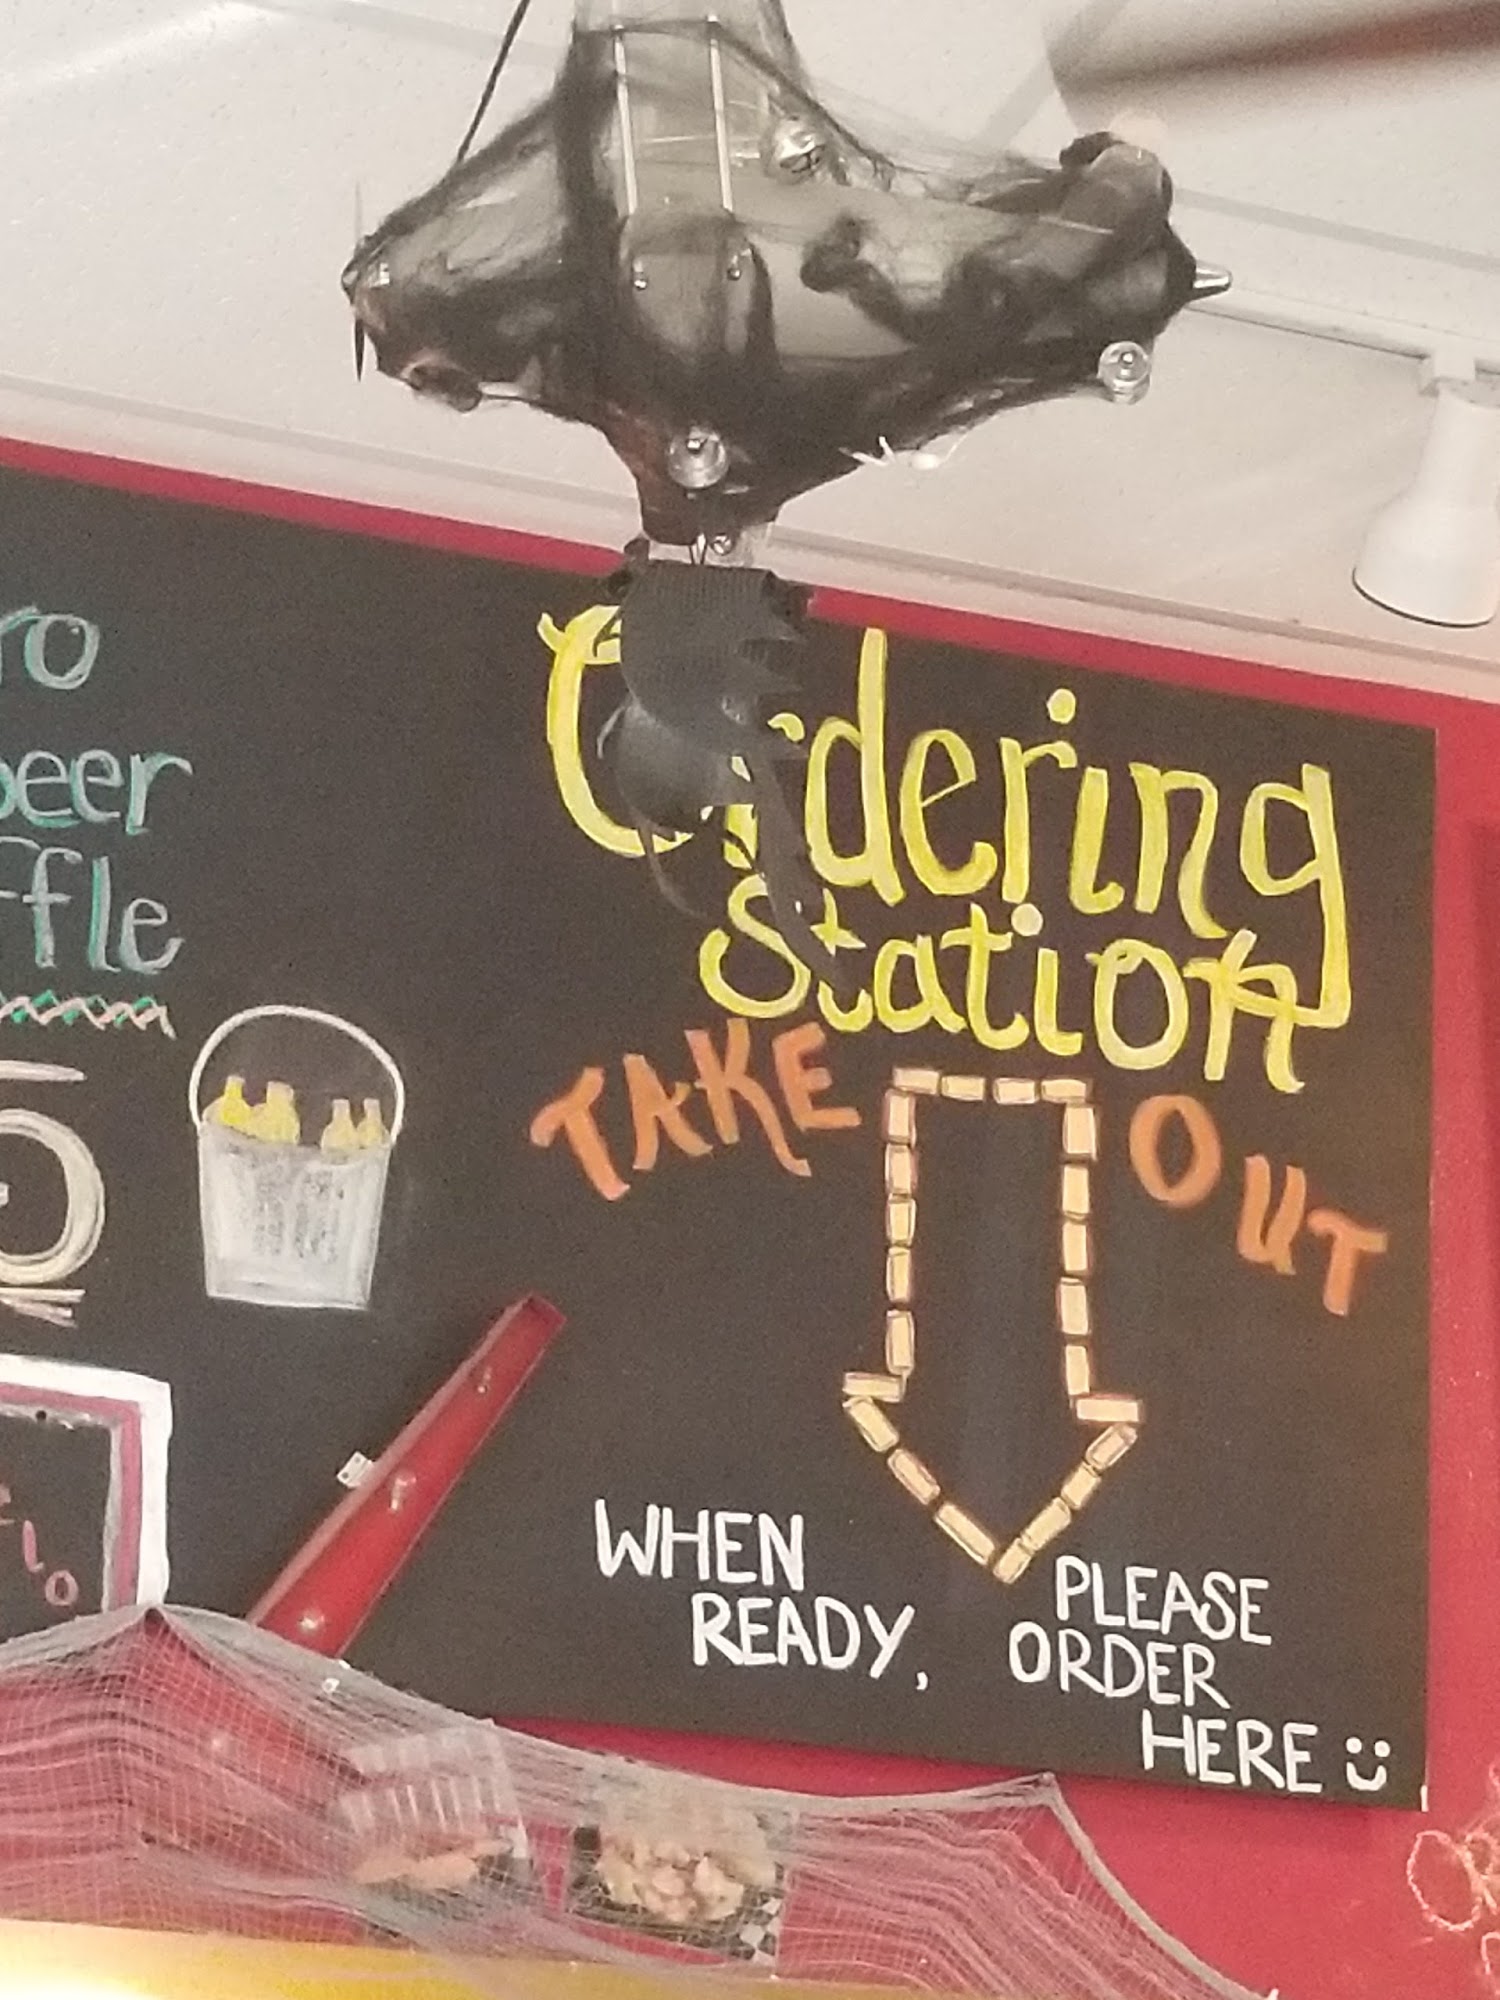 Ordering
Station
TAKE OUT
WHEN
READY,
PLEASE
ORDER
HERE